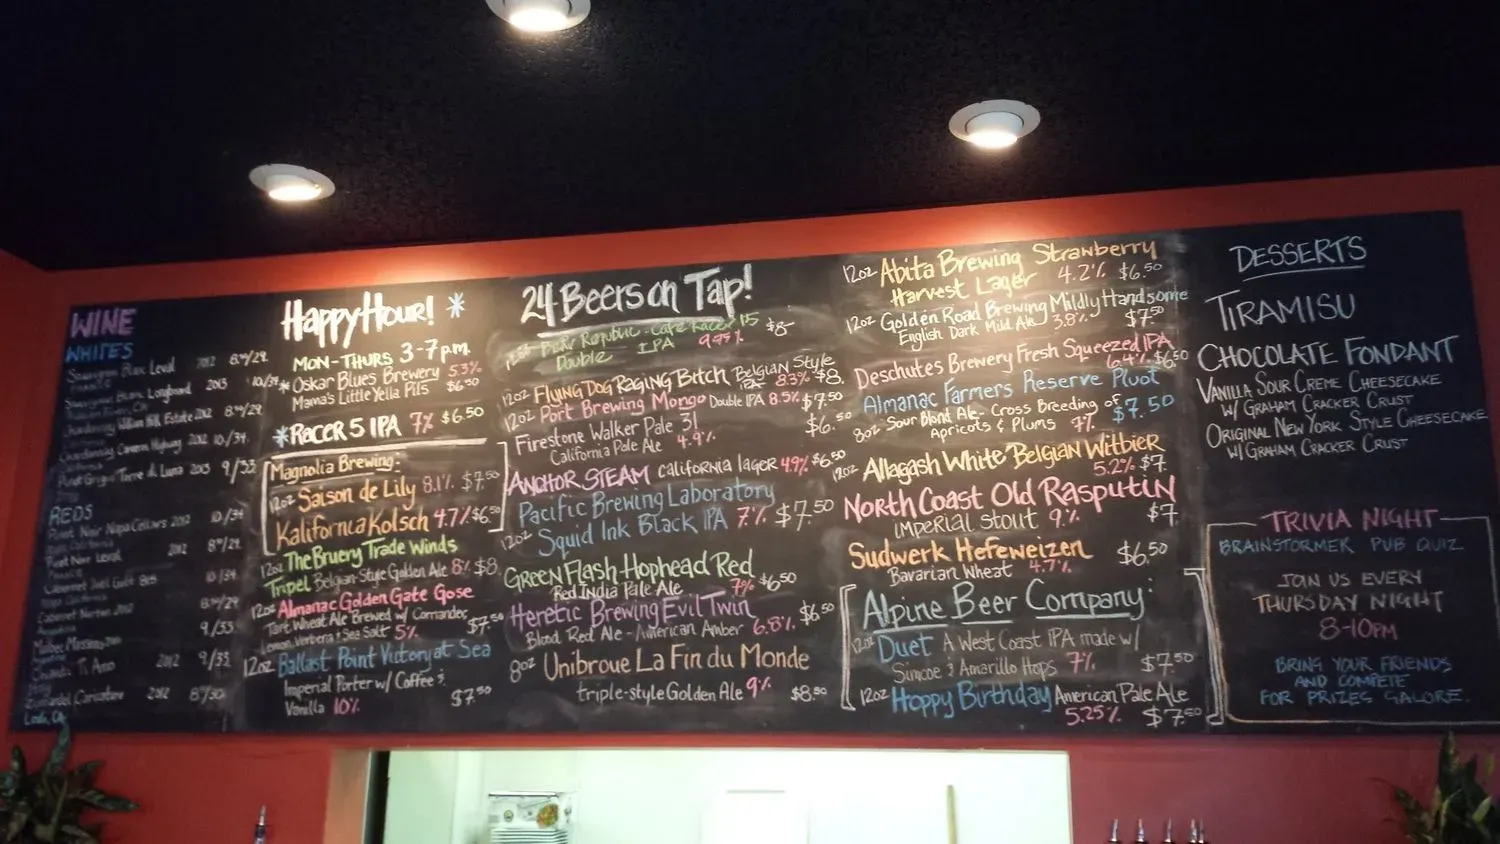 WINE
WHITES
Sauvignon Blanc Level 2012 8.50/29.
Sauvignon Blanc Longboard 2013 10/39.
Chardonnay William Hill Estate 2012 8.50/29.
Chardonnay 2012 10/34.
Pinot Grigio Torre di Luna 2013 9/33
REDS
Pinot Noir Napa Cellars 2012 10/39
Pinot Noir Level 2012 8.50/29.
10/34
8.50/29
9/33
Malbec
Ti Amo 2012 9/33
2012 8/30
Lodi, CA
Happy Hour! *
MON-THURS 3-7p.m.
* Oskar Blues Brewery 5.3%
Mama's Little Yella Pils $6.50
*RACER 5 IPA 7% $6.50
Magnolia Brewing:
12oz Saison de Lily 8.1% $7.50
Kalifornia Kolsch 4.7% $6.50
12oz The Bruery Trade Winds
Tripel Belgian-Style Golden Ale 8% $8
12oz Almanac Golden Gate Gose
Tart Wheat Ale Brewed w/ Coriander,
Lemon Verbena & Sea Salt 5% $7.50
12oz Ballast Point Victory at Sea
Imperial Porter w/ Coffee &
Vanilla 10% $7.50
24 Beers on Tap!
Bear Republic - Cafe Racer 15 $8-
Double IPA 9.75%
12oz Flying Dog Raging Bitch Belgian Style
IPA 8.3% $8.
12oz Port Brewing Mongo Double IPA 8.5% $7.50
Firestone Walker Pale 31 $6.50
California Pale Ale 4.9%
ANCHOR STEAM California lager 4.9% $6.50
Pacific Brewing Laboratory
12oz Squid Ink Black IPA 7% $7.50
GREEN Flash Hophead Red
Red India Pale Ale 7% $6.50
Heretic Brewing Evil Twin
Blood Red Ale - American Amber 6.8% $6.50
8oz Unibroue La Fin du Monde
triple-style Golden Ale 9% $8.50
12oz Abita Brewing Strawberry
Harvest Lager 4.2% $6.50
12oz Golden Road Brewing Mildly Handsome
English Dark Mild Ale 3.8% $7.50
Deschutes Brewery Fresh Squeezed IPA
6.4% $6.50
Almanac Farmers Reserve Pluot
8oz Sour Blond Ale - Cross Breeding of $7.50
Apricots & Plums 7%
12oz Allagash White Belgian Witbier
5.2% $7
North Coast Old Rasputin
imperial stout 9% $7
Sudwerk Hefeweizen $6.50
Bavarian Wheat 4.7%
Alpine Beer Company:
12oz Duet A West Coast IPA made w/
Simcoe & Amarillo Hops 7% $7.50
12oz Hoppy Birthday American Pale Ale
5.25% $7.50
DESSERTS
TIRAMISU
CHOCOLATE FONDANT
VANILLA SOUR CREME CHEESECAKE
W/ GRAHAM CRACKER CRUST
ORIGINAL NEW YORK STYLE CHEESECAKE
W/ GRAHAM CRACKER CRUST
TRIVIA NIGHT
BRAINSTORMER PUB QUIZ
JOIN US EVERY
THURSDAY NIGHT
8-10PM
BRING YOUR FRIENDS
AND COMPETE
FOR PRIZES GALORE.